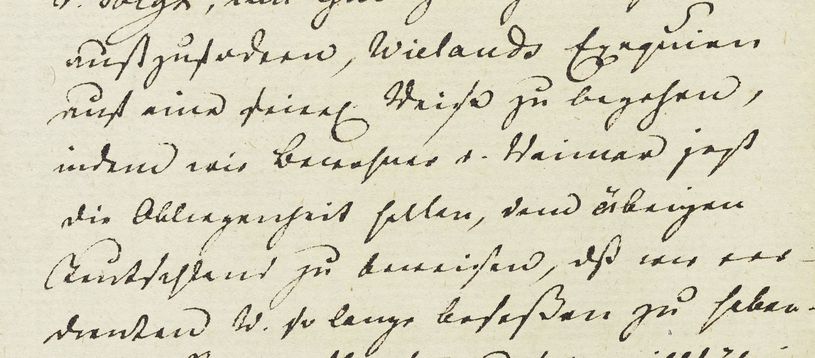 aufzufodern, Wielands Exequien
auf eine feierl. Weise zu begehen,
indem wir Bewohner v. Weimar jezt
die Obliegenheit hetten, dem übrigen
Teutschland zu beweisen, dß wir ver-
dienten W. so lange beseßen zu haben.